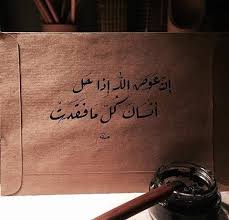 إن عوض الله إذا حل
أنساك كل ما فقدت